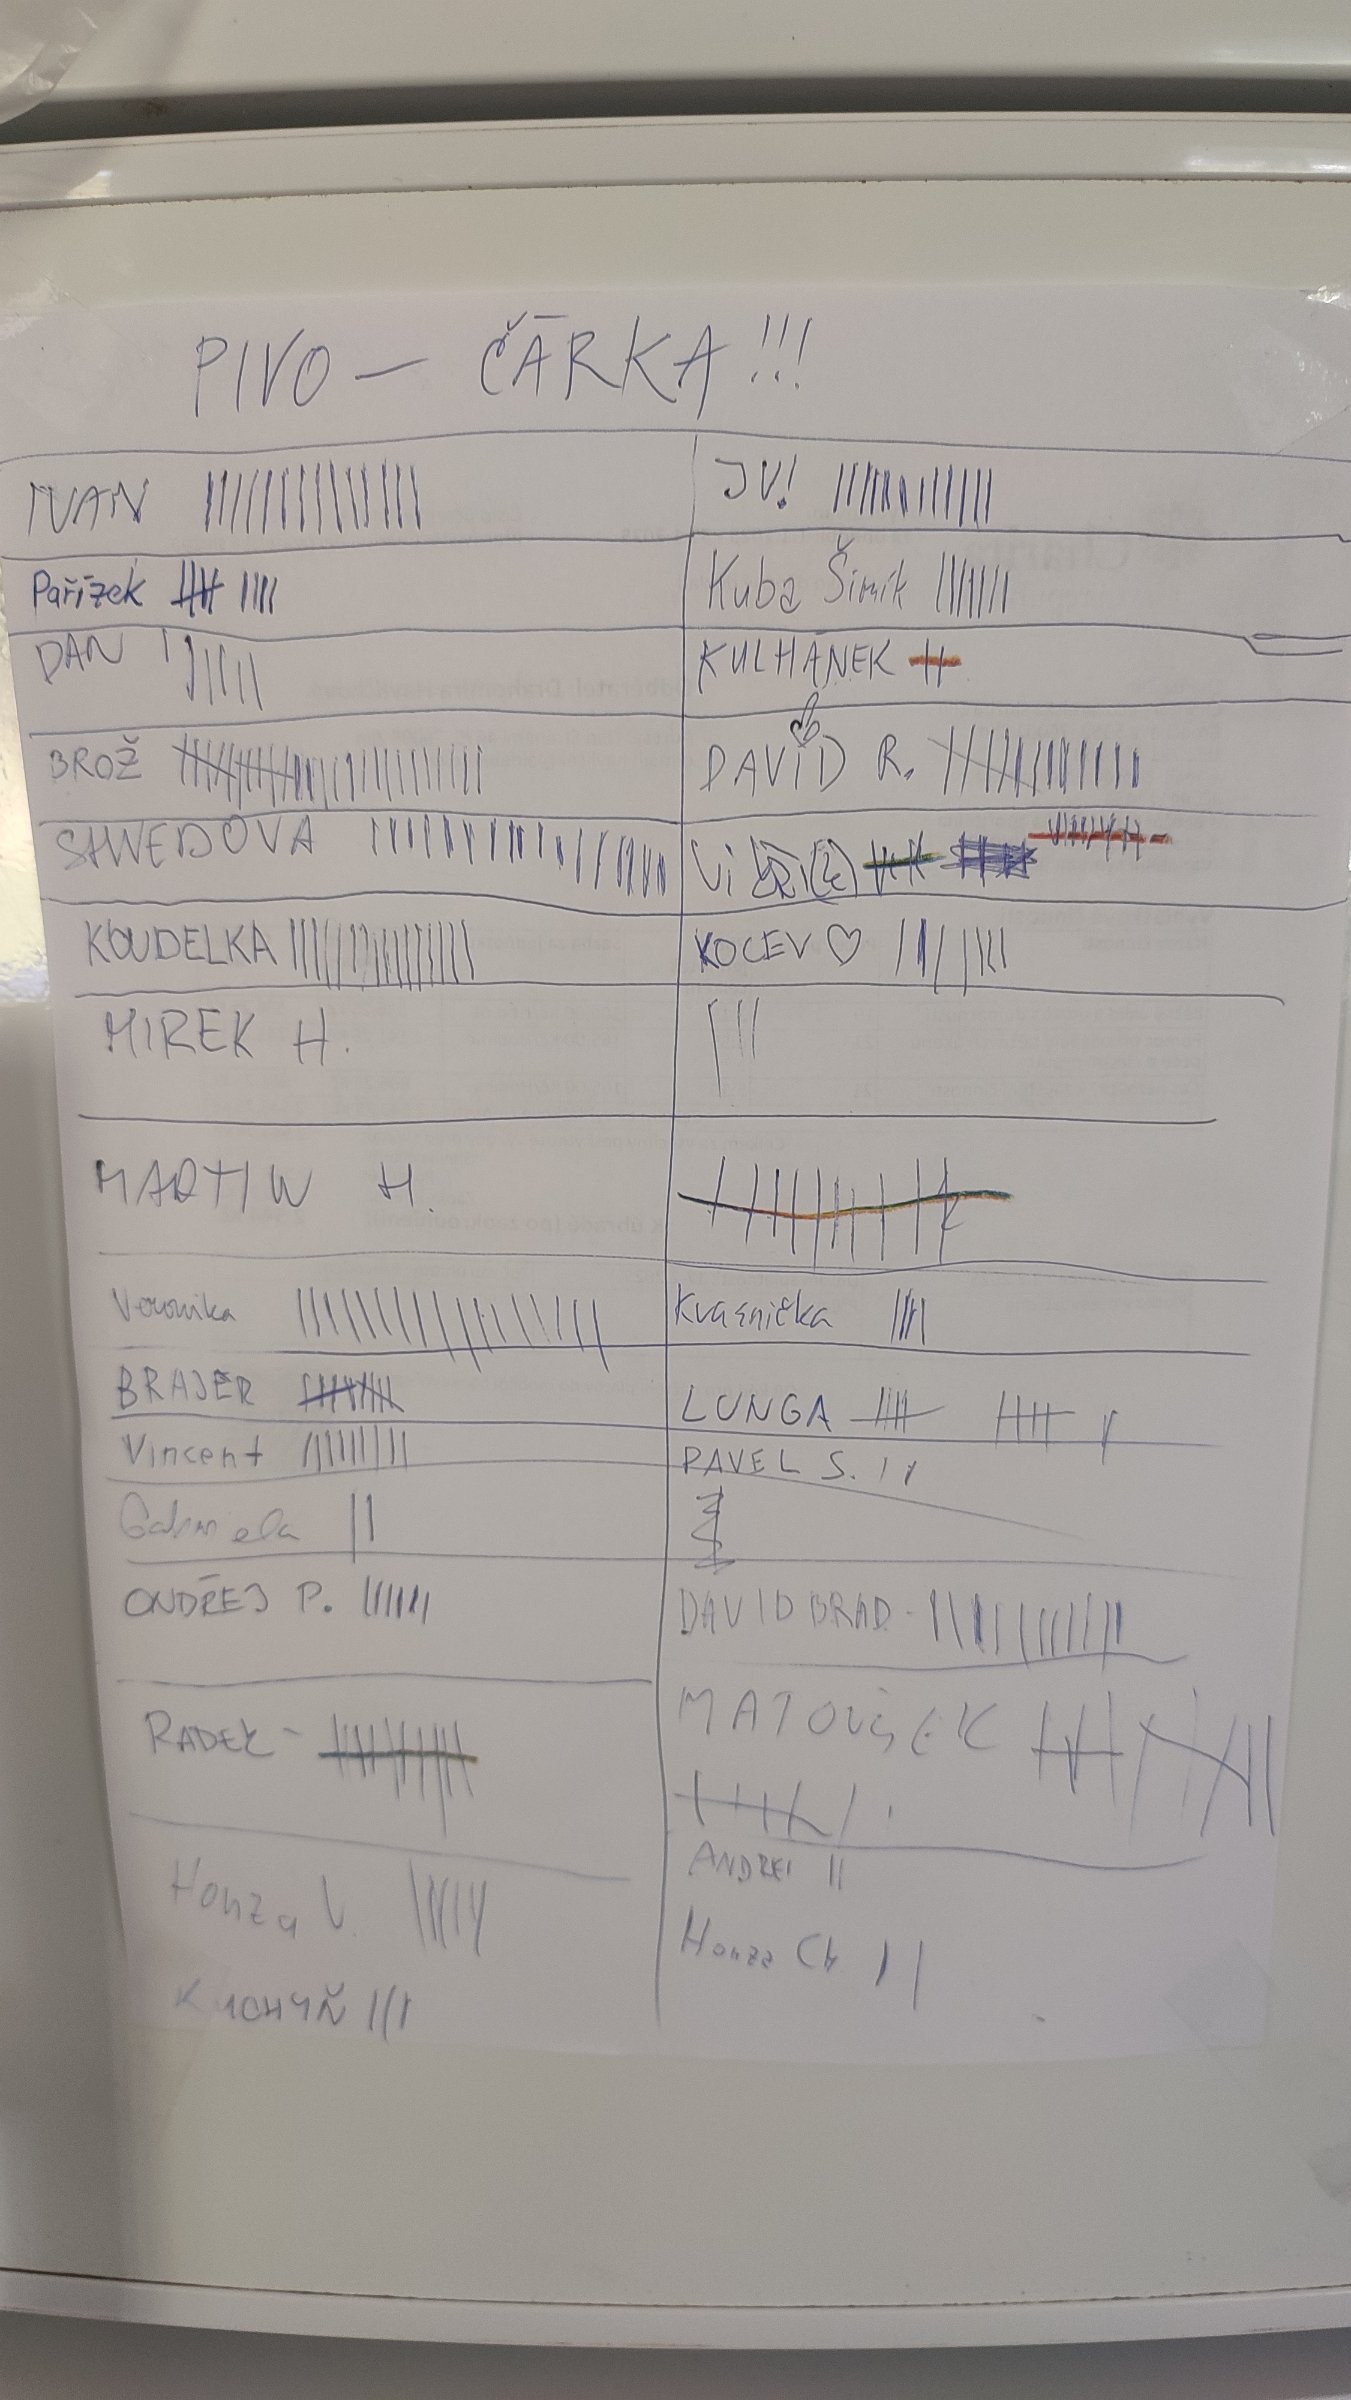 PIVO – ČÁRKA!!!
IVAN
JV!
Pařízek
Kuba Šimík
DAN
KULHANEK
BROŽ
DAVID R.
SHWEDOVA
KOUDELKA
KOCEV ♡
MIREK H.
MARTIN H.
Veronika
Kvasnička
BRAJER
LUNGA
Vincent
PAVEL S.
Gabriela
ONDŘEJ P.
DAVID BRAD-
RADEK -
MATOUŠEK
ANDREI
Honza V.
Honza Ch
KUCHYŇ